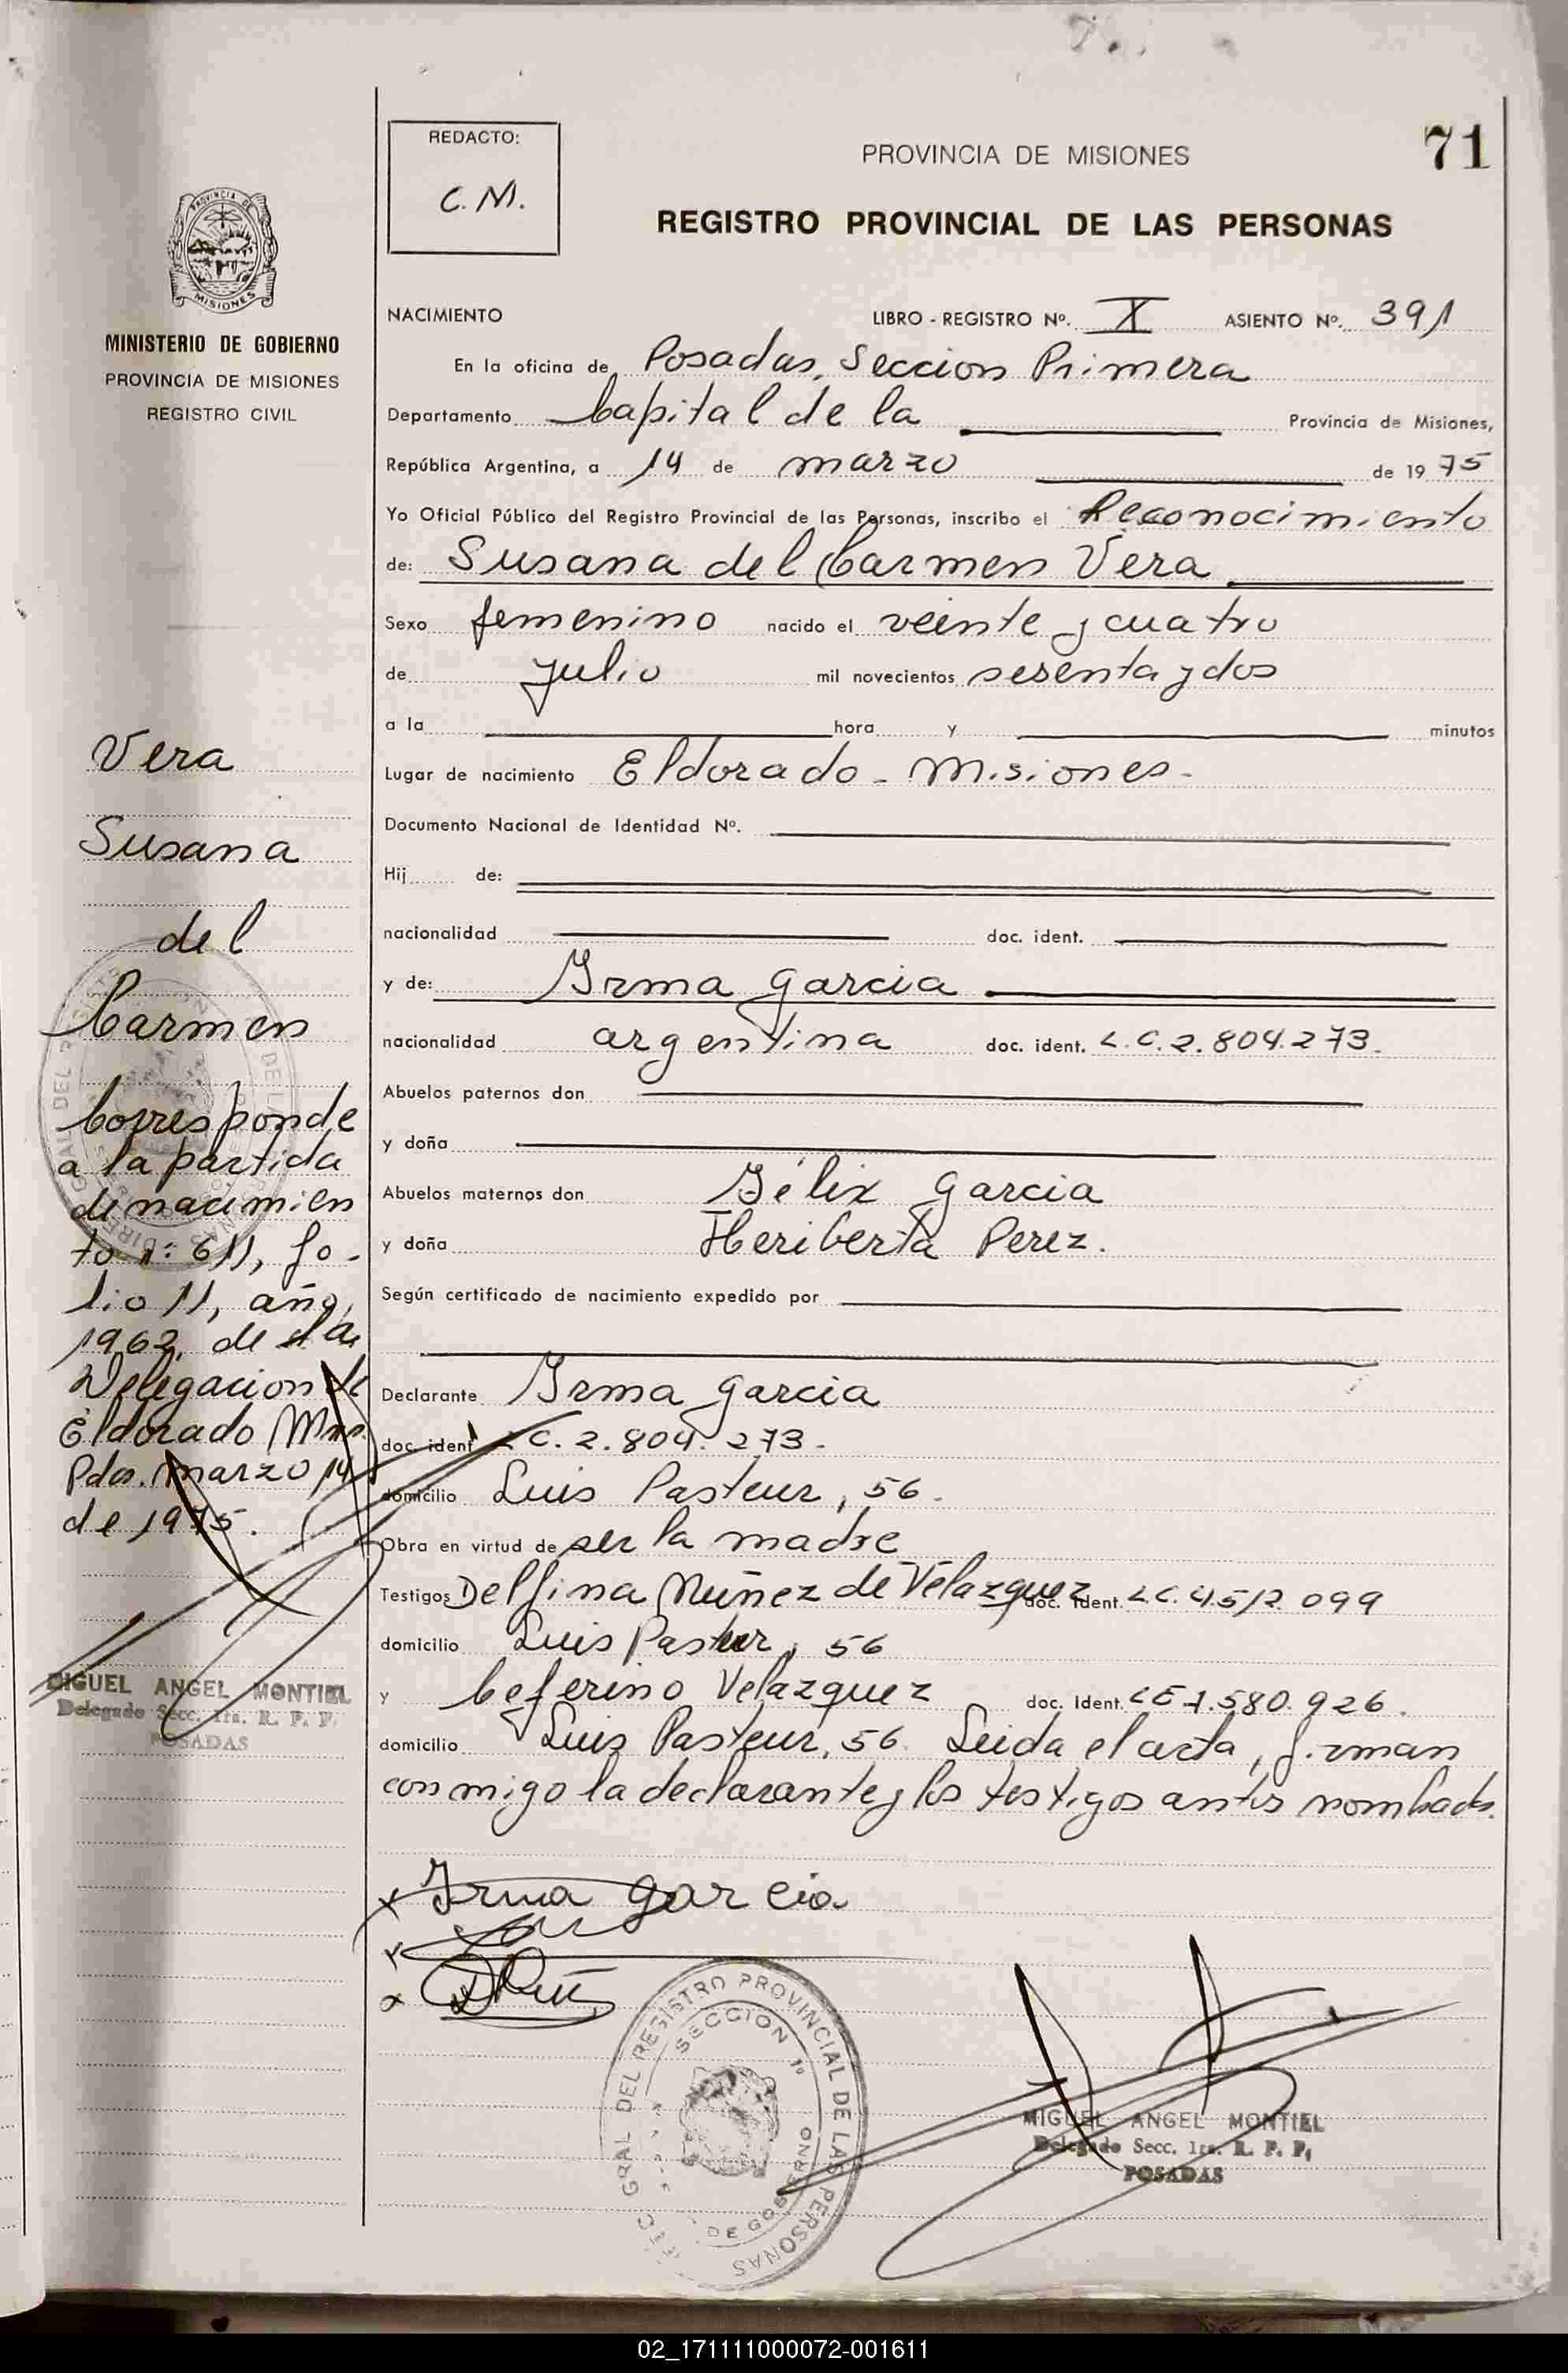 71
REDACTO:
C.M.
PROVINCIA DE MISIONES
REGISTRO PROVINCIAL DE LAS PERSONAS
PROVINCIA DE
MISIONES
MINISTERIO DE GOBIERNO
PROVINCIA DE MISIONES
REGISTRO CIVIL
NACIMIENTO LIBRO - REGISTRO Nº. X ASIENTO Nº. 391
En la oficina de Posadas, Seccion Primera
Departamento Capital de la Provincia de Misiones,
República Argentina, a 14 de marzo de 1975
Yo Oficial Público del Registro Provincial de las Personas, inscribo el Reconocimiento
de: Susana del Carmen Vera
Sexo femenino nacido el veinte y cuatro
de julio mil novecientos sesenta y dos
a la hora y minutos
Lugar de nacimiento Eldorado - Misiones -
Documento Nacional de Identidad Nº.
Hij de:
nacionalidad doc. ident.
y de: Irma Garcia
nacionalidad argentina doc. ident. L.C. 2.804.273.
Abuelos paternos don
y doña
Abuelos maternos don Félix Garcia
y doña Heriberta Perez.
Según certificado de nacimiento expedido por
Declarante Irma Garcia
doc. ident LC. 2.804.273.
domicilio Luis Pasteur, 56.
Obra en virtud de ser la madre
Testigos Delfina Núñez de Velazquez doc. ident. LC. 4.512.099
domicilio Luis Pasteur, 56
y Ceferino Velazquez doc. Ident. LE 7.580.926.
domicilio Luis Pasteur, 56. Leida el acta, firman
conmigo la declarante y los testigos antes nombrados.
x Irma Garcia
x
x
Vera
Susana
del
Carmen
Corresponde
a la partida
de nacimien
to nº: 611, fo-
lio 11, año,
1962, de la
Delegacion de
Eldorado Mnes.
Pdas. marzo 14
de 1975.
MIGUEL ANGEL MONTIEL
Delegado Secc. 1ra. R. P. P.
POSADAS
GRAL DEL REGISTRO PROVINCIAL DE LAS PERSONAS
SECCION 1º
DE GOBIERNO
MIGUEL ANGEL MONTIEL
Delegado Secc. 1ra. R. P. P.
POSADAS
02_171111000072-001611